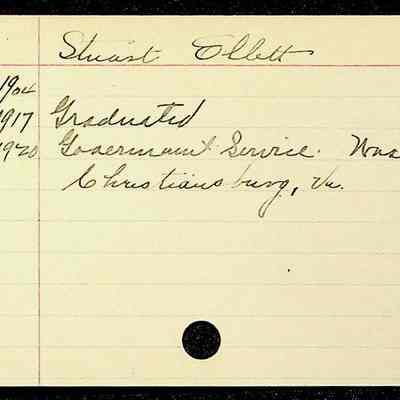 Stuart Ellett
1904
1917 Graduated
1920 Government Service. Was
Christiansburg, Va.